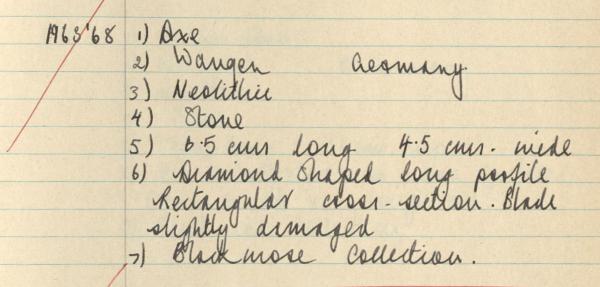 1963'68 1) Axe
2) Wangen Germany
3) Neolithic
4) Stone
5) 6.5 cms long 4.5 cms. wide
6) Diamond shaped long profile
Rectangular cross-section. Blade
slightly damaged
7) Blackmose Collection.